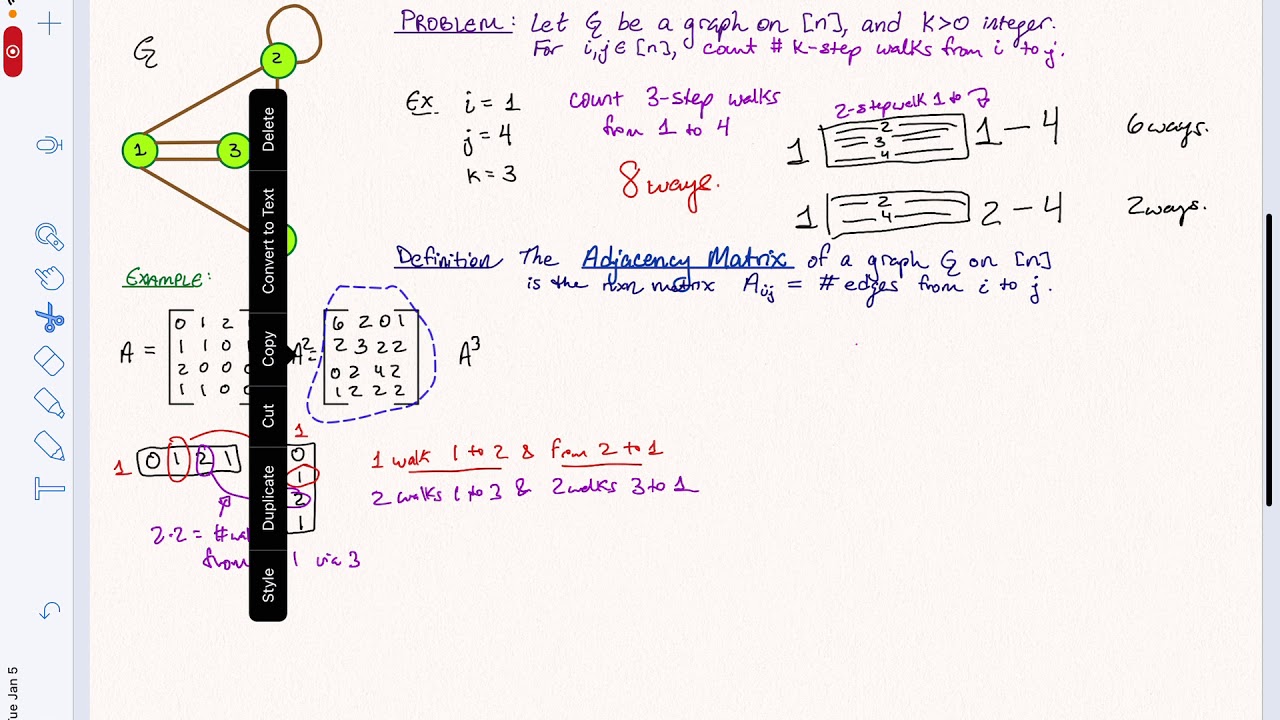 PROBLEM: Let G be a graph on [n], and k>0 integer.
For i,j ∈ [n], count # k-step walks from i to j.
G
2
1
3
Ex i = 1
j = 4
k = 3
count 3-step walks
from 1 to 4
8 ways.
2-step walk 1 to
1 2 3 4 1 – 4 6 ways.
1 2 4 2 – 4 2 ways.
Definition The Adjacency Matrix of a graph G on [n]
is the nxn matrix Aij = # edges from i to j.
EXAMPLE:
A = A²= A³
0 1 2
1 1 0
2 0 0
1 1 0
6 2 0 1
2 3 2 2
0 2 4 2
1 2 2 2
1 0 1 2 1
1
0
1
2
1
1 walk 1 to 2 & from 2 to 1
2 walks 1 to 3 & 2 walks 3 to 1
2·2 =
1 via 3
Delete
Convert to Text
Copy
Cut
Duplicate
Style
T
Jan 5